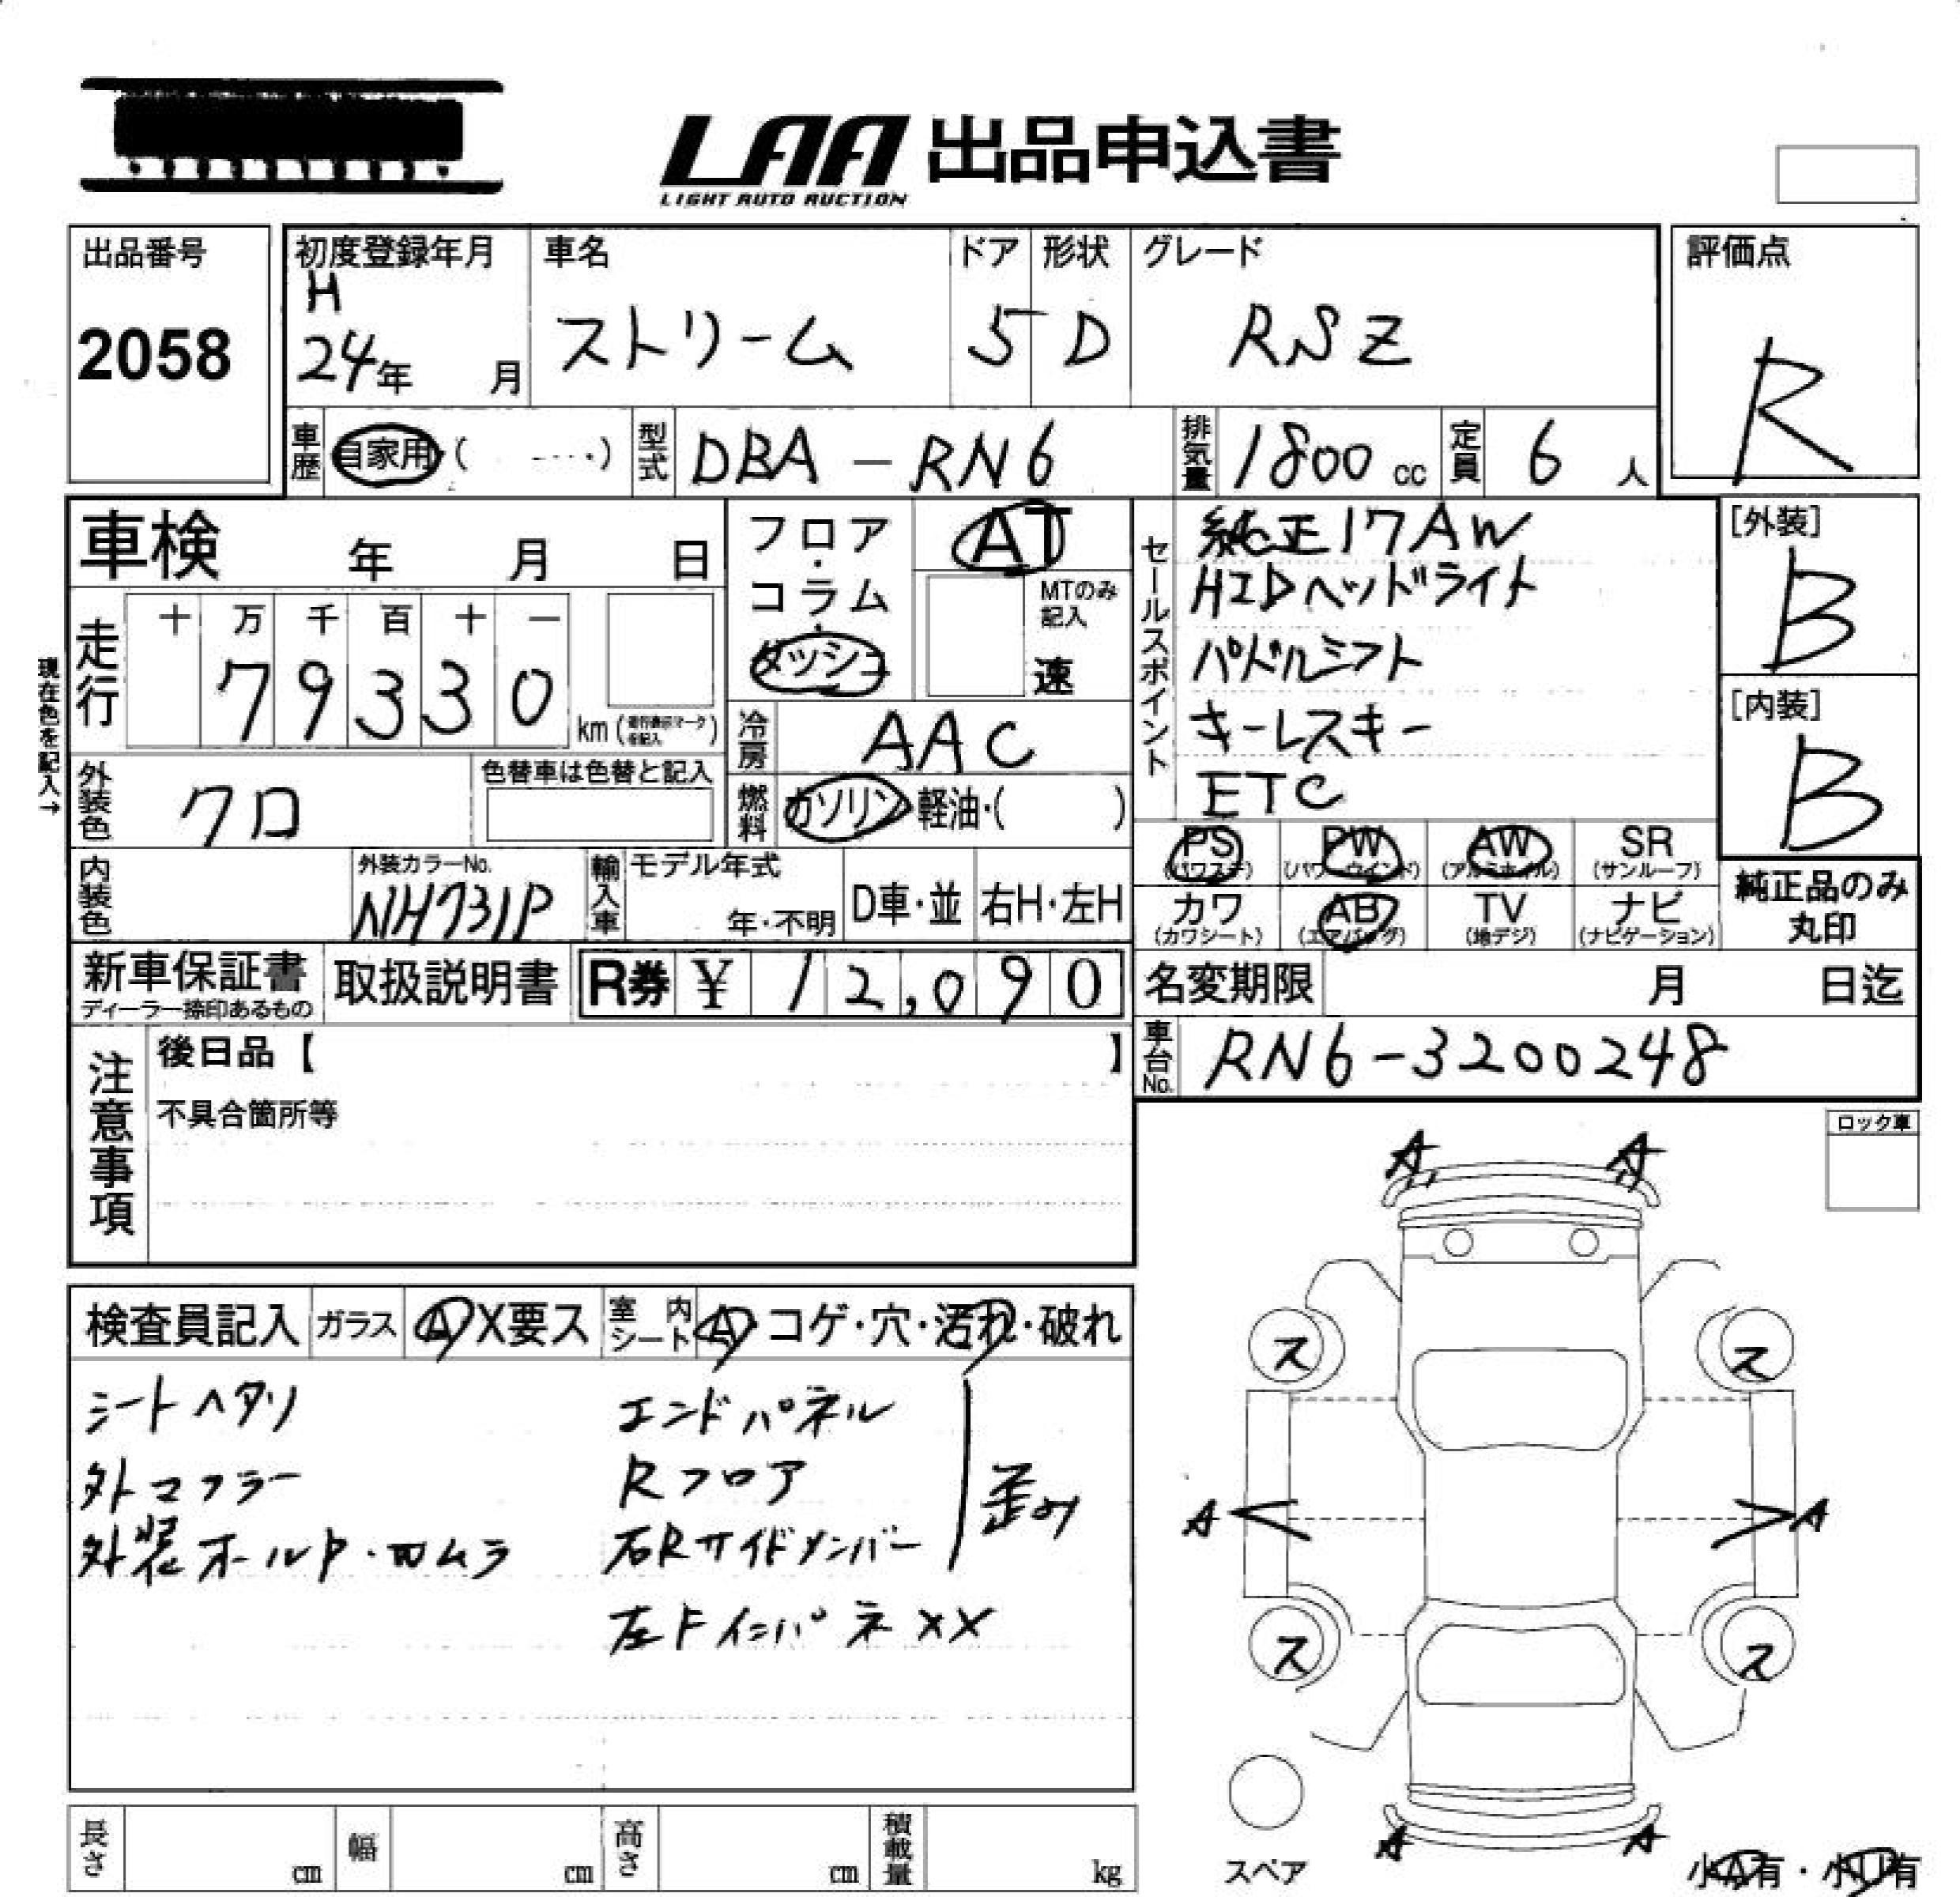 LAA 出品申込書
LIGHT AUTO AUCTION
出品番号
2058
初度登録年月
H
24年 月
車名
ストリーム
ドア
5
形状
D
グレード
RSZ
評価点
R
車歴 自家用 ( )
型式 DBA-RN6
排気量 1800 cc
定員 6 人
車検 年 月 日
フロア・コラム・ダッシュ
AT
MTのみ記入
速
セールスポイント
純正17AW
HIDヘッドライト
パドルシフト
キーレスキー
ETC
[外装]
B
[内装]
B
現在色を記入→
走行
十 万 千 百 十 一
79330
km (走行表示マークを記入)
冷房 AAC
外装色 クロ
色替車は色替と記入
燃料 ガソリン・軽油・( )
PS (パワステ)
PW (パワーウインド)
AW (アルミホイル)
SR (サンルーフ)
カワ (カワシート)
AB (エアバッグ)
TV (地デジ)
ナビ (ナビゲーション)
純正品のみ
丸印
内装色
外装カラーNo.
NH731P
輸入車
モデル年式
年・不明
D車・並
右H・左H
新車保証書
ディーラー捺印あるもの
取扱説明書
R券 ¥ 12,090
名変期限 月 日迄
車台No. RN6-3200248
注意事項
後日品【 】
不具合箇所等
ロック車
検査員記入
ガラス
A X要ス
室内シート
A コゲ・穴・汚れ・破れ
シートヘタリ
外マフラー
外装ボールド・凹ムラ
エンドパネル
Rフロア
右Rサイドメンバー
歪み
左Fインパネ XX
A A
ス ス
A A
ス ス
A A
スペア
小A有・小U有
長さ cm
幅 cm
高さ cm
積載量 kg